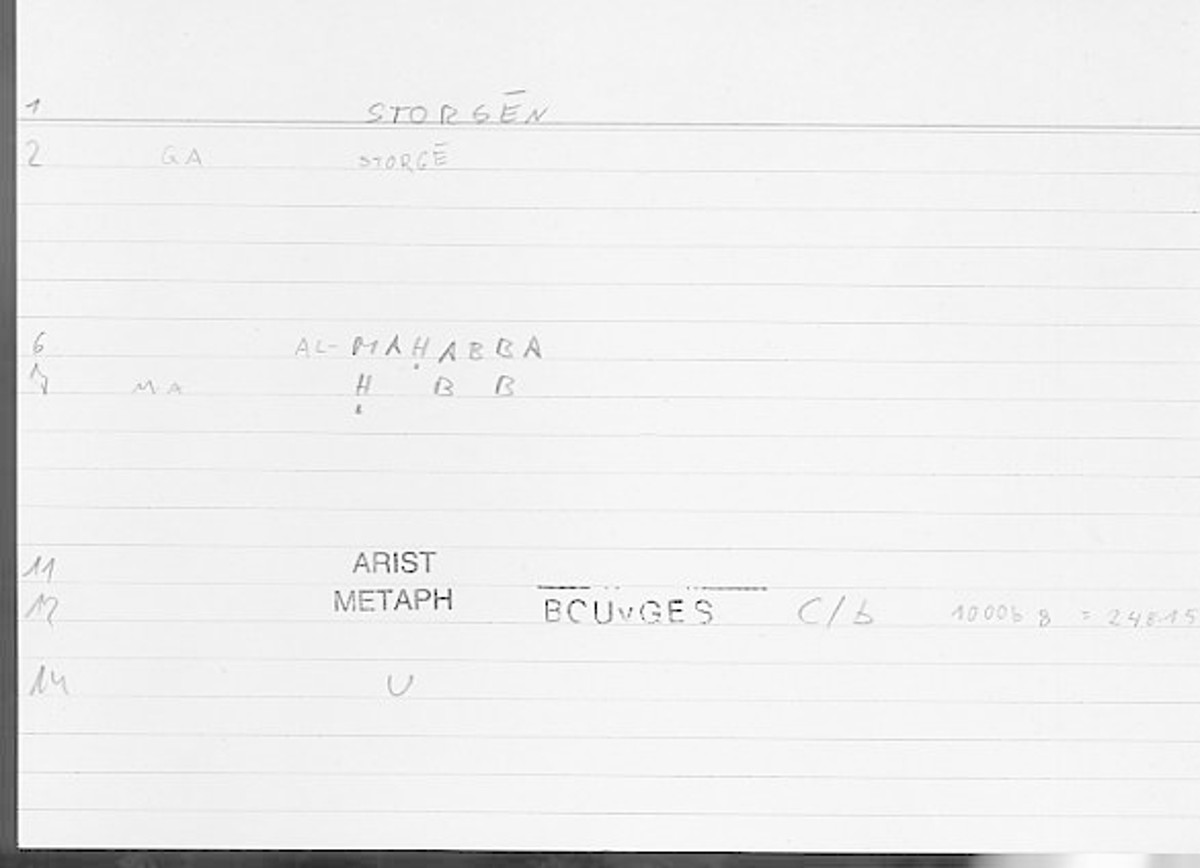 1 STORGĒN
2 GA STORGĒ
6 AL-MAḤABBA
7 MA Ḥ B B
11 ARIST
12 METAPH BOUYGES C/b 1000b 8 = 248.15
14 U